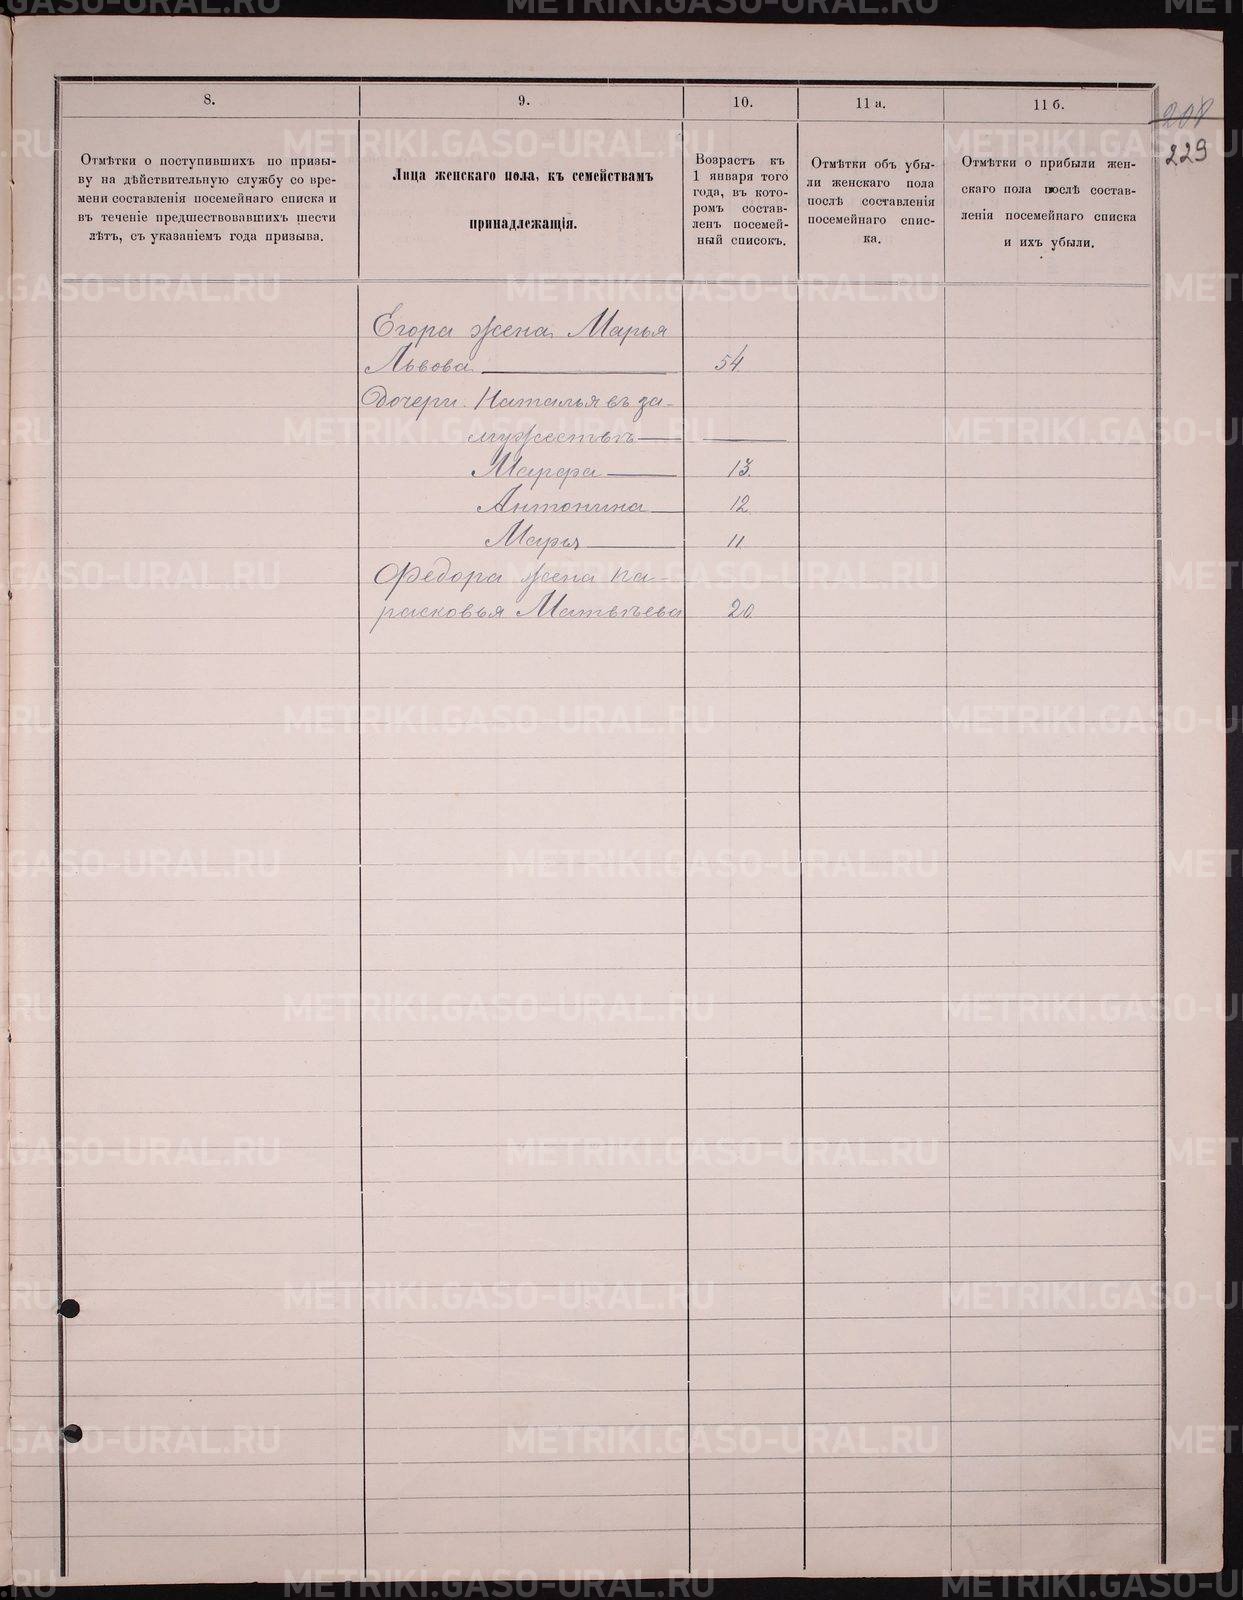 8.
9.
10.
11 а.
11 б.
229
Отмѣтки о поступившихъ по призы-
ву на дѣйствительную службу со вре-
мени составленія посемейнаго списка и
въ теченіе предшествовавшихъ шести
лѣтъ, съ указаніемъ года призыва.
Лица женскаго пола, къ семействамъ
принадлежащія.
Возрастъ къ
1 января того
года, въ кото-
ромъ состав-
ленъ посемей-
ный списокъ.
Отмѣтки объ убы-
ли женскаго пола
послѣ составленія
посемейнаго спис-
ка.
Отмѣтки о прибыли жен-
скаго пола послѣ состав-
ленія посемейнаго списка
и ихъ убыли.
Егора жена Марья
Львова 54
Дочери Наталья въ за-
мужествѣ
Марфа 13
Антонина 12
Марья 11
Федора жена Па-
расковья Матвѣева 20
METRIKI.GASO-URAL.RU